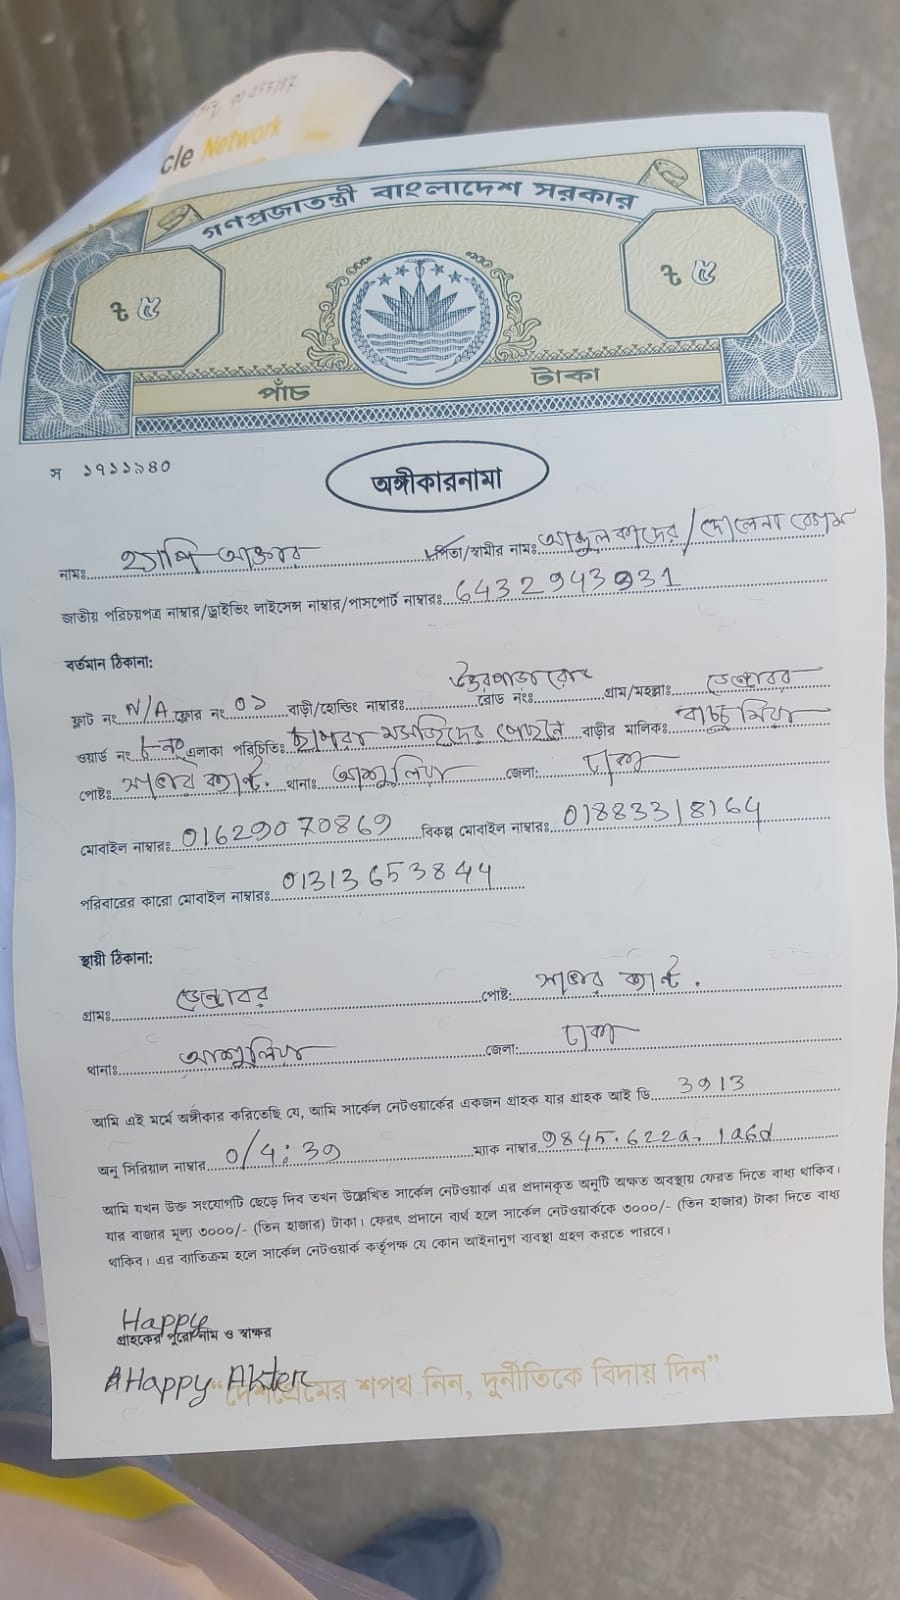 cle Network
গণপ্রজাতন্ত্রী বাংলাদেশ সরকার
৳ ৫
৳ ৫
পাঁচ টাকা
স ১৭১১৯৪০
অঙ্গীকারনামা
নামঃ হ্যাপি আক্তার পিতা/স্বামীর নামঃ আব্দুল কাদের / দোলেনা বেগম
জাতীয় পরিচয়পত্র নাম্বার/ড্রাইভিং লাইসেন্স নাম্বার/পাসপোর্ট নাম্বারঃ 6432943931
বর্তমান ঠিকানা:
ফ্লাট নং N/A ফ্লোর নং ০১ বাড়ী/হোল্ডিং নাম্বারঃ রোড নংঃ উত্তরপাড়া রোড গ্রাম/মহল্লাঃ ডেন্ডাবর
ওয়ার্ড নং এলাকা পরিচিতিঃ ছাপরা মসজিদের পেছনে বাড়ীর মালিকঃ বাচ্চু মিয়া
পোষ্টঃ সাভার ক্যান্ট. থানাঃ আশুলিয়া জেলা: ঢাকা
মোবাইল নাম্বারঃ 01629070869 বিকল্প মোবাইল নাম্বারঃ 01883318164
পরিবারের কারো মোবাইল নাম্বারঃ 01313653844
স্থায়ী ঠিকানা:
গ্রামঃ ডেন্ডাবর পোষ্ট: সাভার ক্যান্ট.
থানাঃ আশুলিয়া জেলা: ঢাকা
আমি এই মর্মে অঙ্গীকার করিতেছি যে, আমি সার্কেল নেটওয়ার্কের একজন গ্রাহক যার গ্রাহক আই ডি 3913
অনু সিরিয়াল নাম্বার 0/4:39 ম্যাক নাম্বার 9845.622a.1a6d
আমি যখন উক্ত সংযোগটি ছেড়ে দিব তখন উল্লেখিত সার্কেল নেটওয়ার্ক এর প্রদানকৃত অনুটি অক্ষত অবস্থায় ফেরত দিতে বাধ্য থাকিব।
যার বাজার মূল্য ৩০০০/- (তিন হাজার) টাকা। ফেরৎ প্রদানে ব্যর্থ হলে সার্কেল নেটওয়ার্ককে ৩০০০/- (তিন হাজার) টাকা দিতে বাধ্য
থাকিব। এর ব্যতিক্রম হলে সার্কেল নেটওয়ার্ক কর্তৃপক্ষ যে কোন আইনানুগ ব্যবস্থা গ্রহণ করতে পারবে।
Happy
গ্রাহকের পুরো নাম ও স্বাক্ষর
Happy Akter
“দেশপ্রেমের শপথ নিন, দুর্নীতিকে বিদায় দিন”